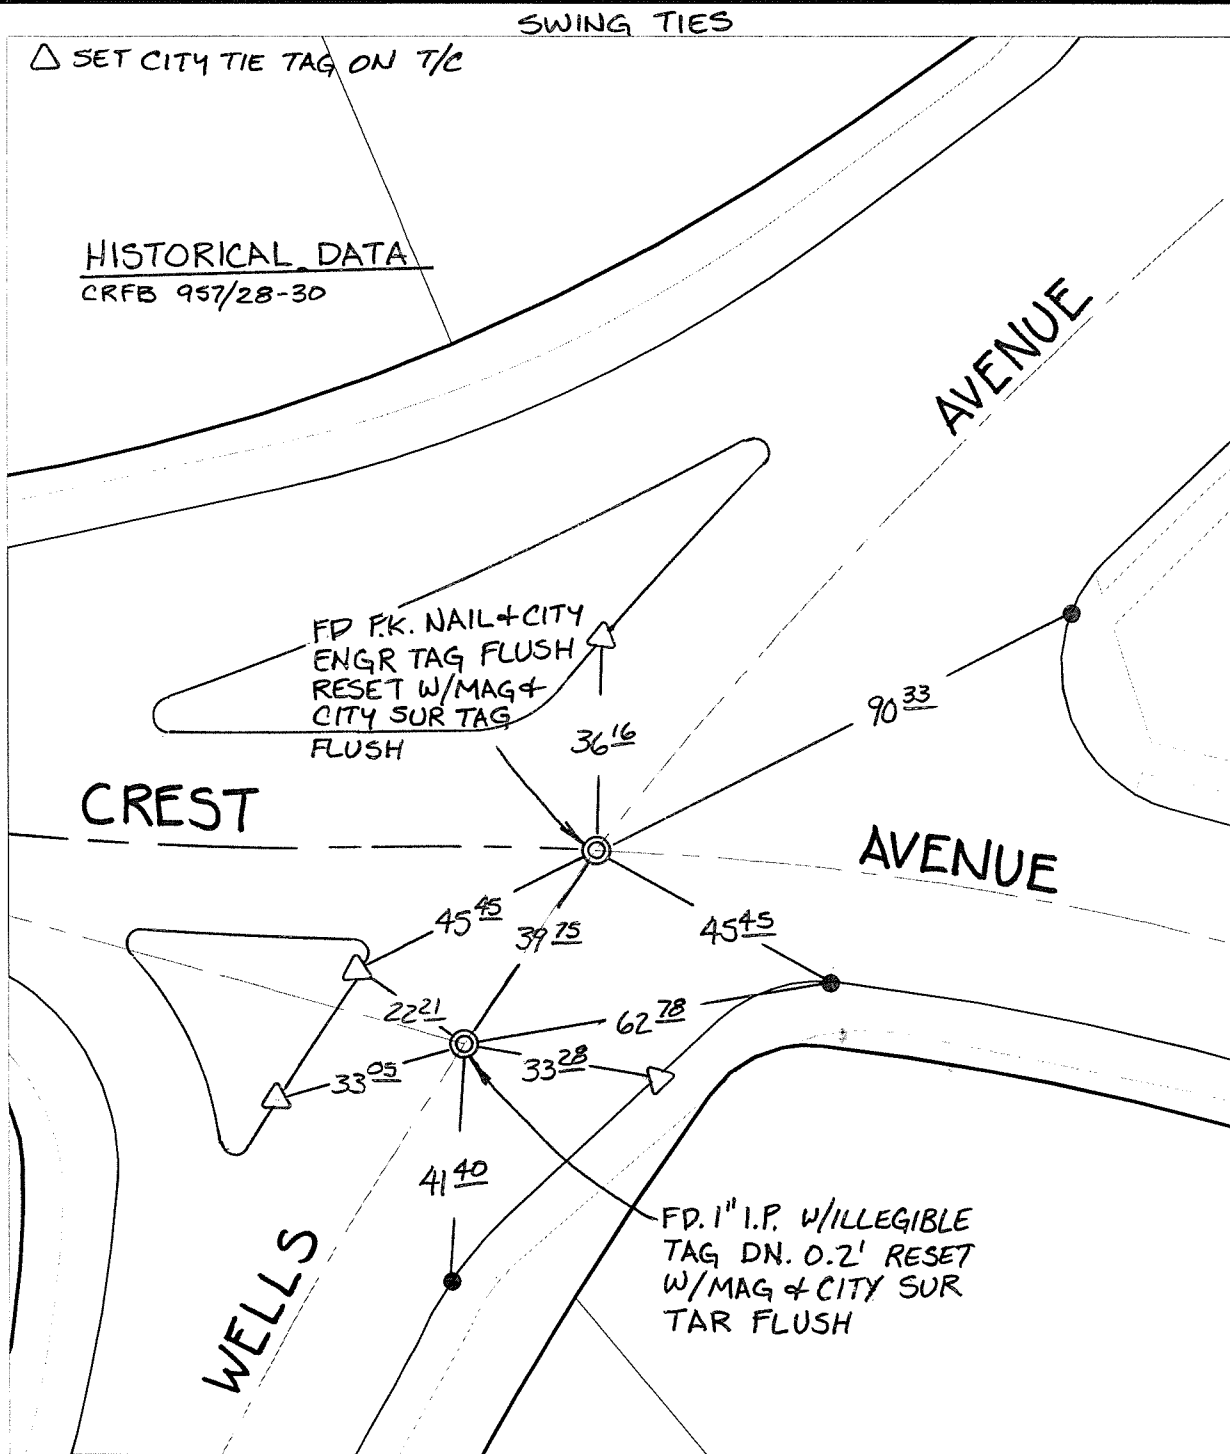 SWING TIES
△ SET CITY TIE TAG ON T/C
HISTORICAL DATA
CRFB 957/28-30
AVENUE
FD P.K. NAIL & CITY
ENGR TAG FLUSH
RESET W/MAG &
CITY SUR TAG
FLUSH
36 16
90 33
CREST
AVENUE
45 45
39 75
45 45
22 21
62 78
33 05
33 28
41 40
FD. 1" I.P. W/ILLEGIBLE
TAG DN. 0.2' RESET
W/MAG & CITY SUR
TAR FLUSH
WELLS